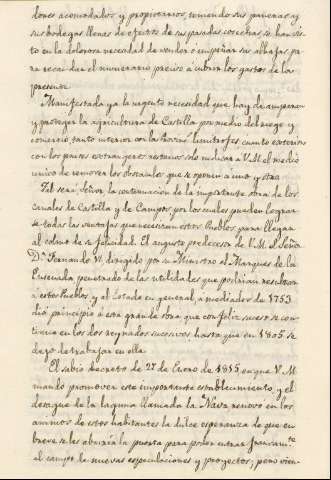 dores acomodados y propietarios, teniendo sus paneras y
sus bodegas llenas de efectos de sus pasadas cosechas, se han vis-
to en la dolorosa necesidad de vender o empeñar sus alhajas, pa-
ra recaudar el numerario preciso a cubrir los gastos de la
presente.
Manifestada ya la urgente necesidad que hay de amparar
y proteger la agricultura de Castilla por medio del riego y
comercio tanto interior con las Provas limitrofes, cuanto exterior
con los países extrangeros restanos solo indicar a V. M. el medio
unico de remover los obstaculos que se oponen a uno y otro.
Tal sera, Señor, la continuacion de la importante obra de los
Canales de Castilla y de Campos, por los cuales pueden lograr-
se todas las ventajas que necesitan estos Pueblos para llegar
al colmo de su felicidad. El augusto predecesor de V. M. el Señor
Dn. Fernando VI, dirigido por su Ministro el Marques de la
Ensenada, penetrado de las utilidades que podrian resultar
a estos Pueblos, y al Estado en general, a mediados de 1753
dió principio a esta grande obra que con feliz suceso se con-
tinuó en los dos reynados sucesivos hasta que en 1805 se
dejó de trabajar en ella.
El sabio decreto de 27 de Enero de 1815 en que V. M.
mandó promover este importante establecimiento, y el
desagüe de la laguna llamada la Nava renovó en los
animos de estos habitantes la dulce esperanza de que en
breve se les abriria la puerta para poder entrar francamte
al campo de nuevas especulaciones y proyectos; pero vien-